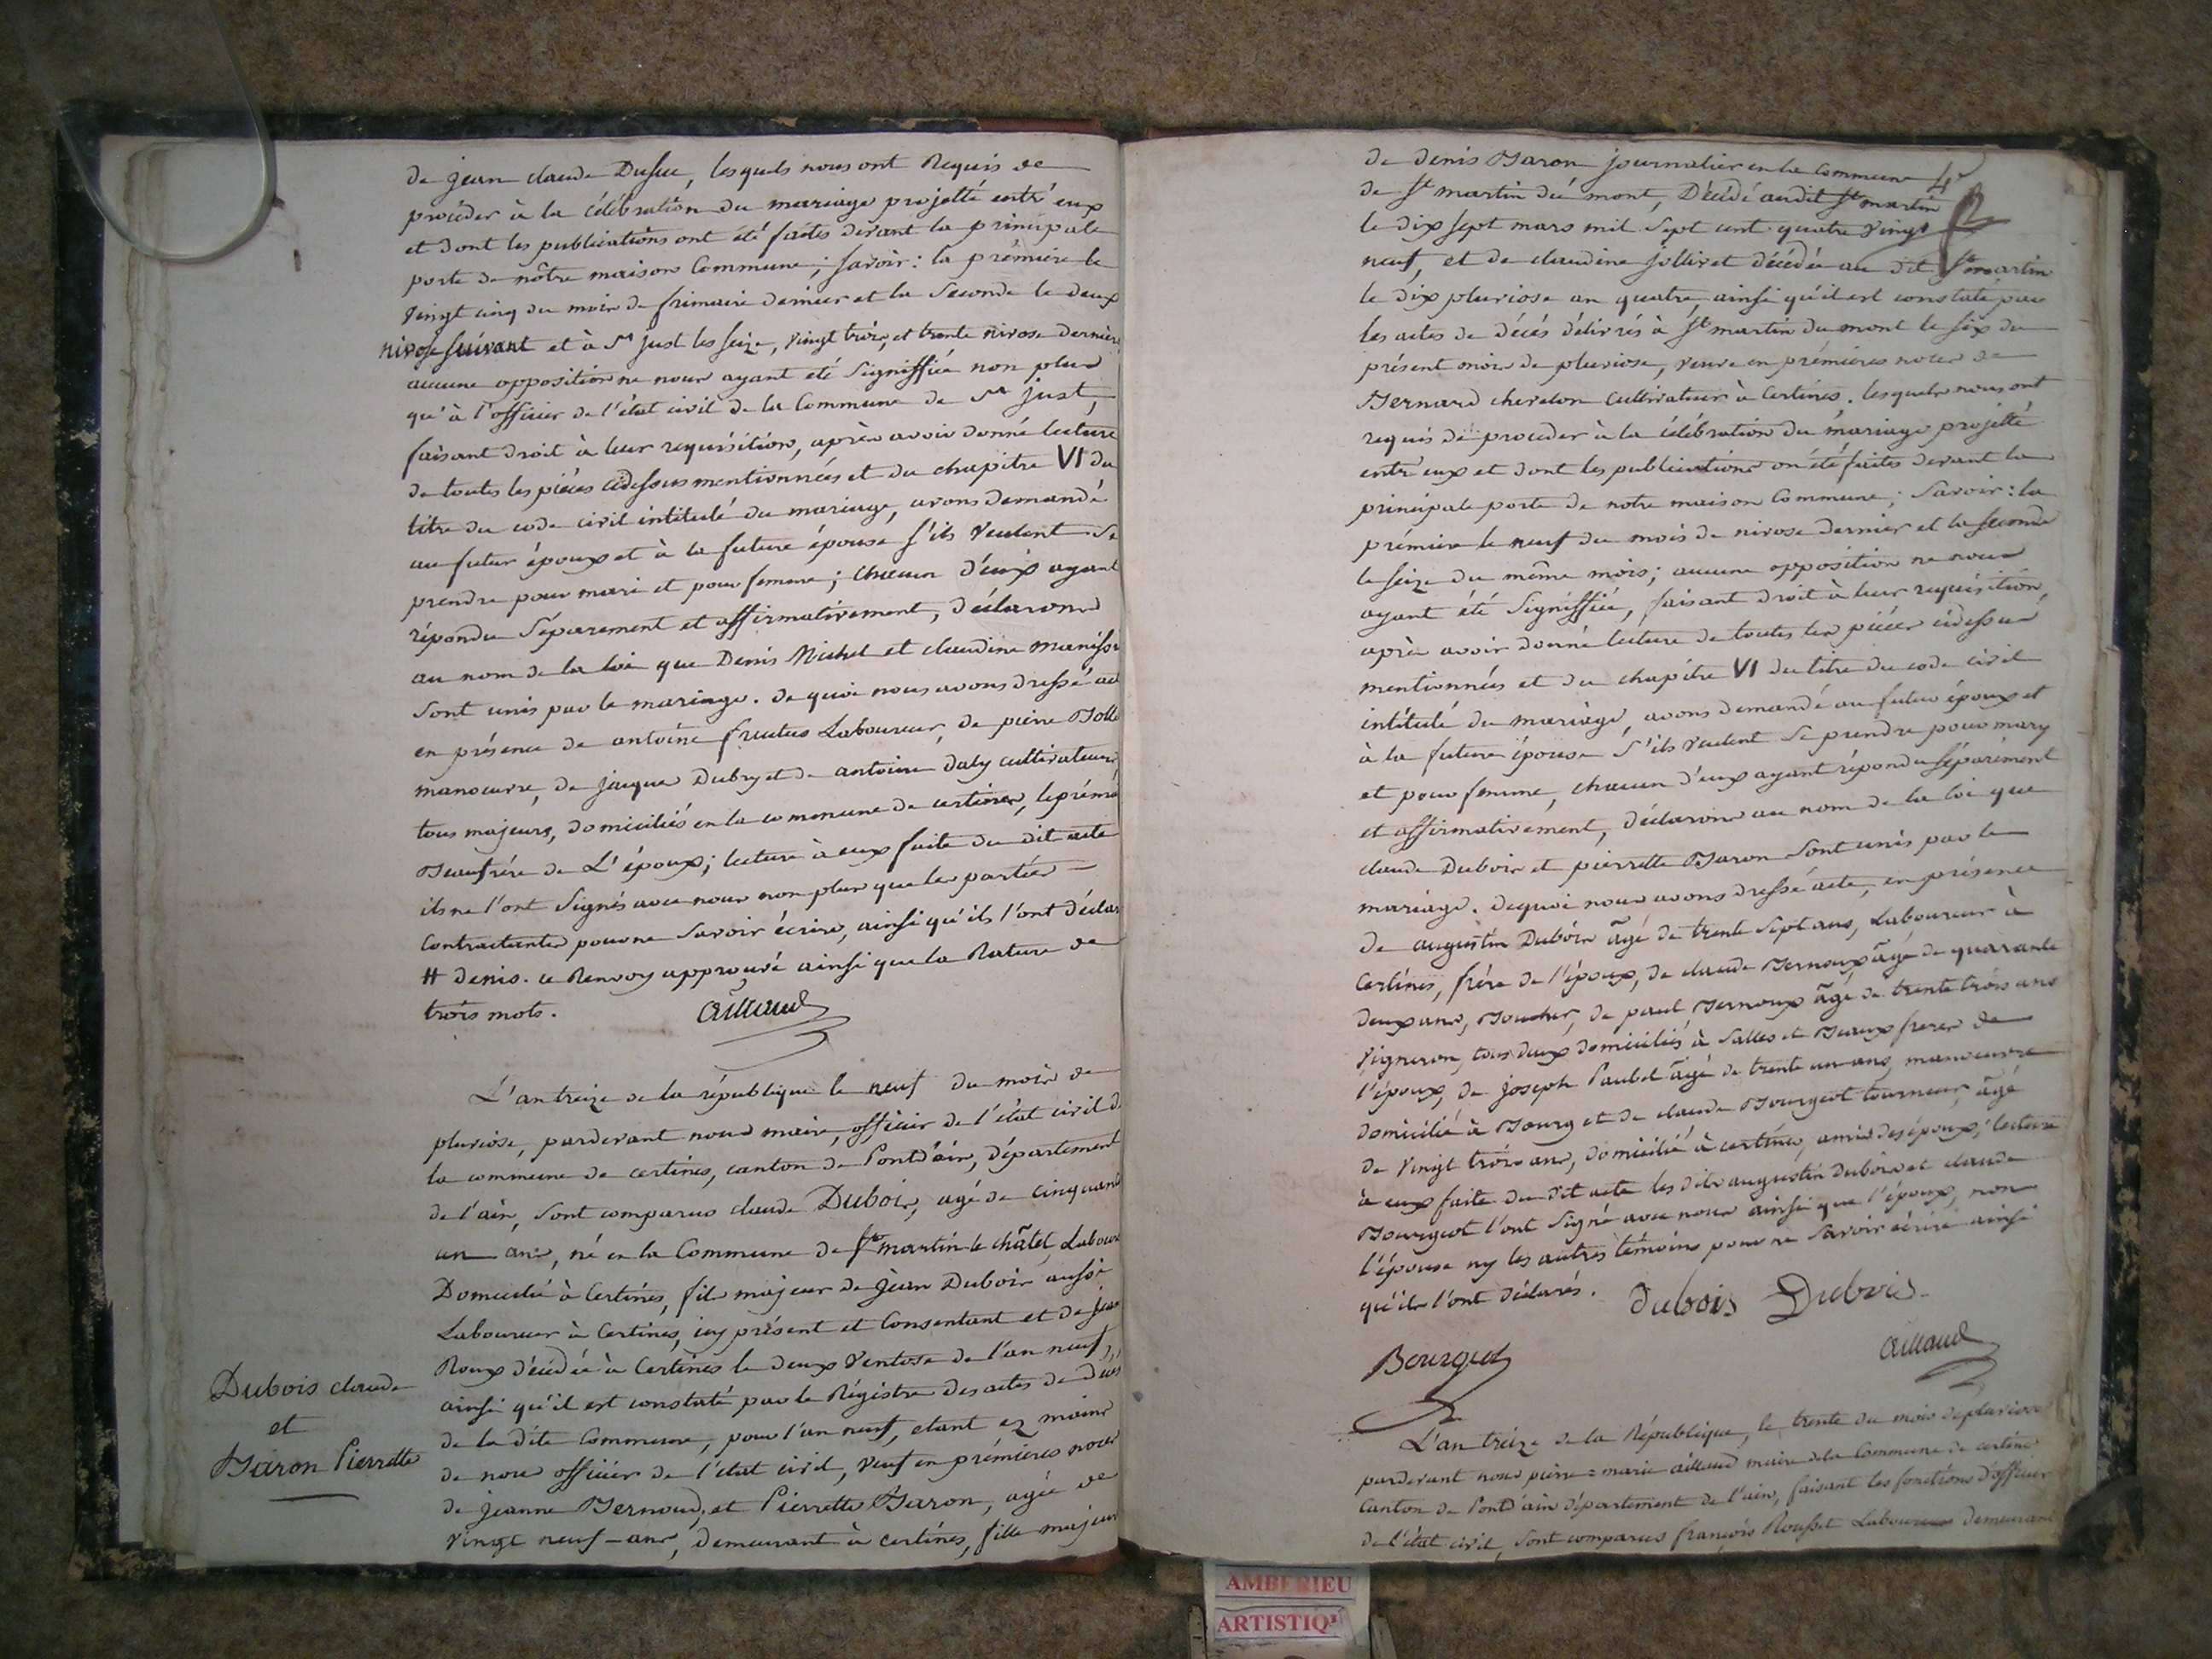 de jean claude Dufuc, lesquels nous ont Requis de
procéder à la célébration du mariage projetté entr'eux
et dont les publications ont été faites devant la principale
porte de nôtre maison Commune; savoir: la prémière le
vingt cinq du mois de frimaire dernier et la Seconde le deux
nivose suivant et à St just les seize, vingt trois, et trente nivose dernier,
aucune opposition ne nous ayant eté Signiffiée non plus
qu'à l'officier de l'état civil de la Commune de St just,
faisant droit à leur requisition, après avoir donné lecture
de toutes les pièces cidessus mentionnées et du chapitre VI du
titre du code civil intitulé du mariage, avons demandé
au futur époux et à la future épouse s'ils veulent se
prendre pour mari et pour femme; chacun d'eux ayant
répondu Séparement et affirmativement, déclarons
au nom de la loi que Denis Michel et claudine manissi
sont unis par le mariage. de quoi nous avons dressé act
en présence de antoine fructus Laboureur, de pierre
manoeuvre, de jacque Dubry et de antoine daly cultivateurs
tous majeurs, domiciliés en la commune de certines, le prémier
Beaufrère de L'époux; lecture à eux faite du dit acte
ils ne l'ont Signés avec nous non plus que les parties
Contractantes pour ne Savoir écrire, ainsi qu'ils l'ont déclaré
# denis. ce Renvoy approuvé ainsi que la Rature de
trois mots. Aillaud
L'an treize de la république le neuf du mois de
pluviose, pardevant nous maire, officier de l'état civil de
la commune de certines, canton de Pontd'ain, département
de l'ain, sont comparus claude Dubois, agé de cinquante
un ans, né en la Commune de St martin le châtel, Laboureur
Domicilié à Certines, fils majeur de jean Dubois aussi
Laboureur à Certines, icy présent et Consentant et de jeanne
Roux décédée à Certines le deux Ventose de l'an neuf,
ainsi qu'il est constaté par le Régistre des actes de décès
de la dite Commune, pour l'an neuf, etant ez mains
de nous officier de l'état civil, veuf en prémières noces
de jeanne Bernoud, et Pierrette Baron, agée de
vingt neuf ans, demeurant à certines, fille majeure
Dubois claude
et
Baron Pierrette
de denis Baron journalier en la Commune
de St martin du mont, Décédé audit St martin
le dix sept mars mil sept cent quatre vingt
neuf, et de claudine jollivet décédée au dit St martin
le dix pluviose an quatre, ainsi qu'il est constaté par
les actes de décès délivrés à St martin du mont le six du
présent mois de pluviose, veuve en prémières noces de
Bernard chevelon cultivateur à Certines. lesquels nous ont
requis de proceder à la célébration du mariage projetté
entr'eux et dont les publications on été faites devant la
principale porte de notre maison Commune; Savoir: la
prémière le neuf du mois de nivose dernier et la seconde
le seize du même mois; aucune opposition ne nous
ayant été Signiffiée, faisant droit à leur requisition,
après avoir donné lecture de toutes les pièces cidessus
mentionnées et du chapitre VI du titre du code civil
intitulé du mariage, avons demandé au futur époux et
à la future épouse s'ils veulent se prendre pour mary
et pour femme, chacun d'eux ayant répondu séparément
et affirmativement, déclarons au nom de la loi que
claude Dubois et pierrette Baron Sont unis par le
mariage. Dequoi nous avons dressé acte, en présence
de augustin Dubois âgé de trente sept ans, Laboureur à
Certines, frère de l'époux, de claude Bernoux âgé de quarante
deux ans, Boucher, de paul Bernoux âgé de trente trois ans
Vigneron, tous deux domiciliés à Salles et Beaux freres de
l'époux, de joseph Paubel âgé de trente un ans, manoeuvre
domicilié à Bourg et de claude Bourgeot tourneur, âgé
de vingt trois ans, domicilié à certines, amis des époux; lecture
à eux faite du dit acte les dits augustin dubois et claude
Bourgeot l'ont Signé avec nous ainsi que l'époux, non
l'épouse ny les autres témoins pour ne Savoir écrire ainsi
qu'ils l'ont déclarés. dubois Dubois
Bourgeot Aillaud
L'an treize de la République, le trente du mois de pluviose
pardevant nous pierre=marie aillaud maire de la Commune de certines
Canton de Pontd'ain département de l'ain, faisant les fonctions d'officier
de l'état civil, Sont comparus françois Rousset Laboureur demeurant
AMBERIEU
ARTISTIQ